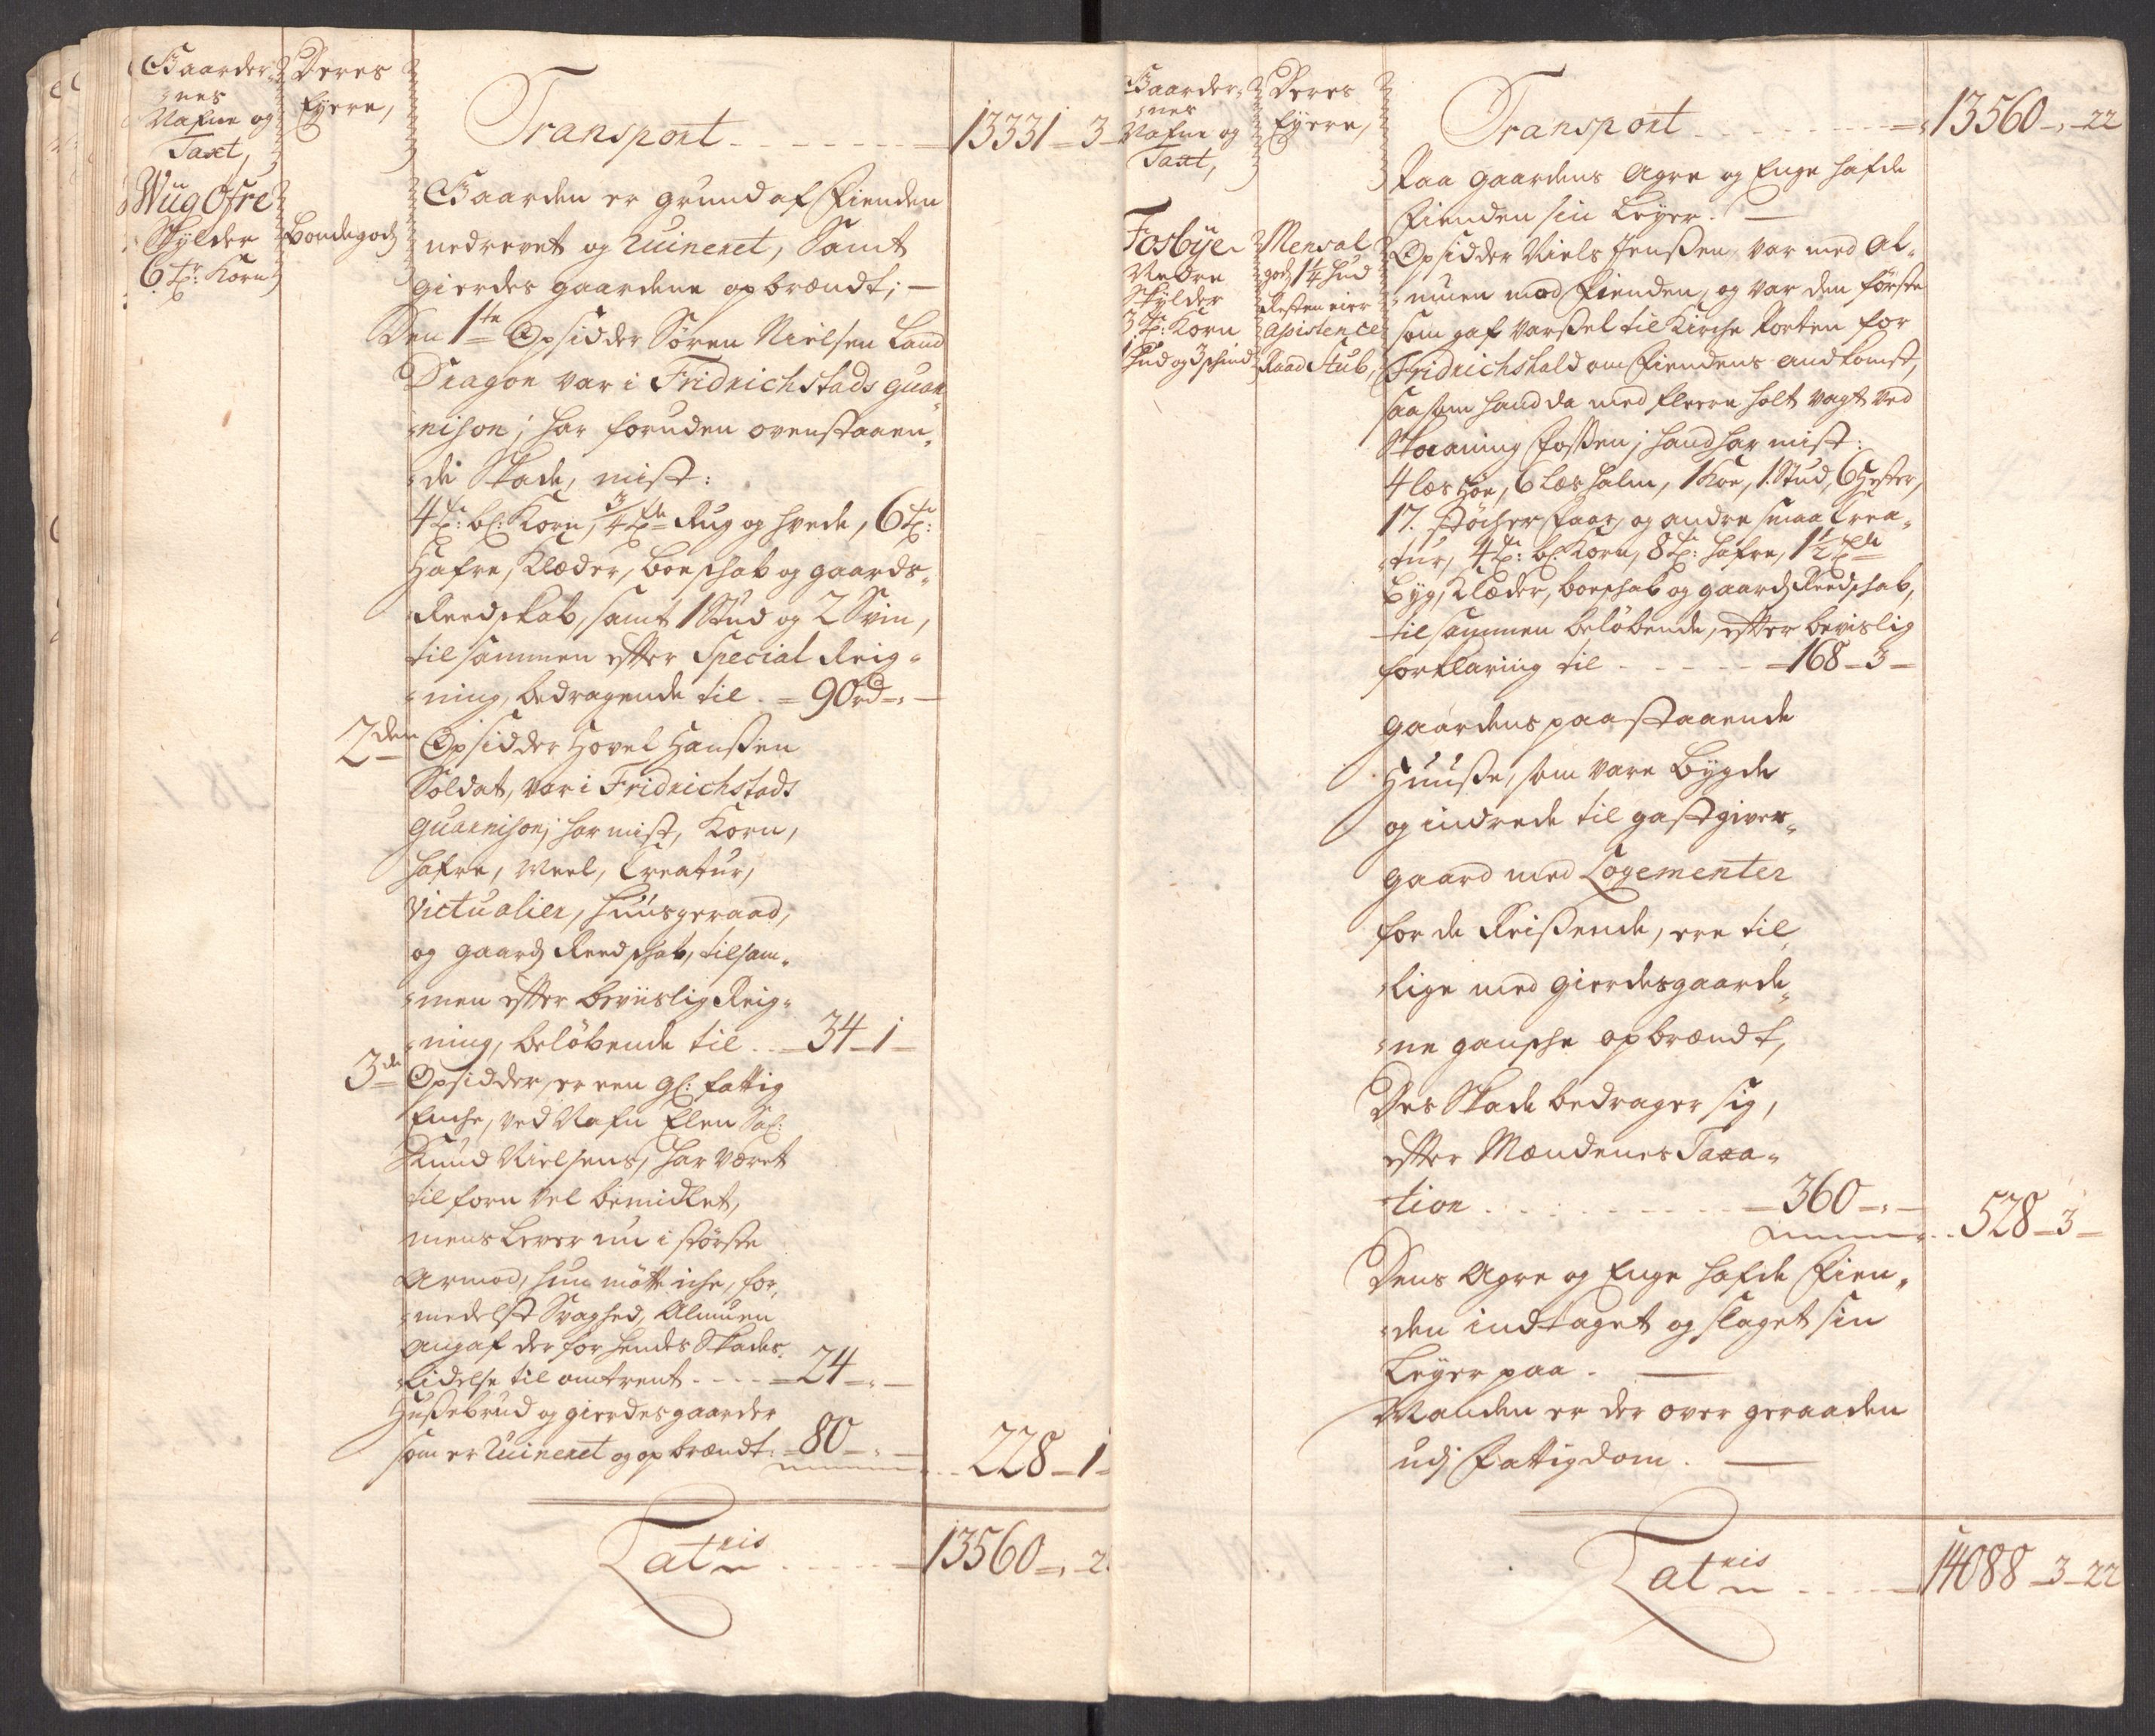 Gaarder-
nes
Nafne og
Taxt,
Deres
Eyere,
Transport - - - - - - - 13331 - 3 -
Wüg Øfre
Skylder
6 Tr: Korn
Bondegods
Gaarden er grund af Fienden
nedrevet og Ruineret, Samt
gierdes gaardene opbrændt; -
Den 1te Opsidder Søren Nielsen Land
Dragon var i Fridrichstads guar-
nison; har foruden ovenstaaen-
de Skade, mist:
4 Tr: bl: Korn, 3/4 Tde Rug og hvede, 6 Tr:
Hafre, Klæder, boeschab og gaards-
Reedskab, samt 1 Stud og 2 Sviin,
til sammen efter Special Reig-
ning, bedragende til - 90 rd - " -
2den Opsidder Hovel Hanssen
Soldat, var i Fridrichstads
guarnison; har mist, Korn,
hafre, Meel, Creatur,
Victualier, Huusgeraad,
og gaards Reedschab, tilsam-
men efter beviislig Reig-
ning, beløbende til - - 34 - 1 -
3de Opsidder, er een gl: fattig
Enche, ved Nafn Elen Sal:
Knud Nielsens, har været
tilforn vel bemidlet,
mens lever nu i største
Armod, hun møtte iche, for-
medelst Svaghed, Almuen
angaf der for hendes Skades
lidelse til omtrent - - - - 24 - " -
Hussebrud og gierdesgaarder
som er Ruineret og op brændt: - 80 - " -
- - 228 - 1 -
Latris - - - - - 13560 - " - 2
Gaarder-
nes
Nafne og
Taxt,
Deres
Eyere,
Transport - - - - - - - 13560 - " - 22
Paa gaardens Agre og Enge hafde
Fienden sin Leyer. -
Fosbÿe
Nedre
Skylder
3 Tr: Korn
1 Hud og 3 schind
Mensal
gods 1 1/4 Hud
Resten eier
Assistence
Raad Stub,
Opsidder Niels Jenssen, var med Al-
muen mod Fienden, og var den første
som gaf varssel til Kirche Porten for
Fridrichshald om Fiendens andkomst,
saasom hand da med fleere holt vagt ved
Skaaning Fossen; hand har mist:
4 læs Høe, 6 læs halm, 1 Koe, 1. Stud, 6 Hester,
17. Støcher Faar, og andre smaa Crea-
tur, 4 Tr: bl: Korn, 8 Tr: Hafre, 1 1/2 Tde
Byg, Klæder, boeschab og gaards Reedschab,
til sammen beløbende, efter bevislig
forklaring til - - - - - 168 - 3 -
gaardens paastaaende
Huusse, som vare bygde
og indrede til gastgiver-
gaard med Logementer
for de Reissende, ere til
lige med gierdesgaarde-
ne gansche opbrændt,
Des Skade bedrager sig,
efter Mændenes Taxa-
tion - - - - - - - - - 360 - " -
- - 528 - 3 -
Dens Agre og Enge hafde Fien-
den indtaget og slaget sin
Leyer paa. -
Manden er der over geraaden
udj Fattigdom. -
Latris - - - - - 14088 - 3 - 22